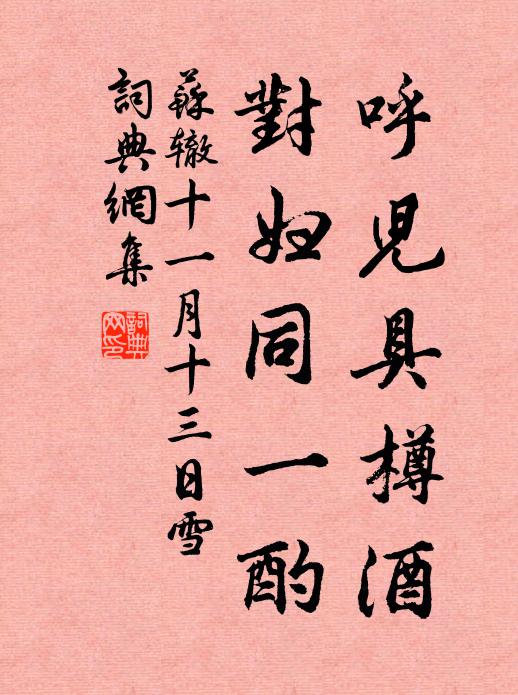 呼兒具樽酒
對妇同一酌
蘇辙十一月十三日雪
詞典網集
詞典
网印